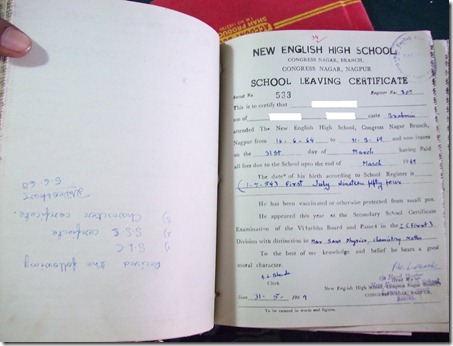 Received the following
1) S.L.C
2) S.S.C certificate
3) Character certificate.
6-6-69
NEW ENGLISH HIGH SCHOOL
CONGRESS NAGAR, BRANCH,
CONGRESS NAGAR, NAGPUR
SCHOOL LEAVING CERTIFICATE
Serial No. 533 Register No.
This is to certify that
son of caste Brahmin
attended The New English High School, Congress Nagar Branch,
Nagpur from to 31-3-69 and now leaves
on the 31st day of March having Paid
all fees due to the School upto the end of March 1969
The date* of his birth according to School Register is
(1-7-54) First July Nineteen fifty four
He has been vaccinated or otherwise protected from small pox.
He appeared this year at the Secondary School Certificate
Examination of the Vidarbha Board and Passed in the I (First)
Division with distinction in Physics, Chemistry, Maths
To the best of my knowledge and belief he bears a good
moral character.
Clerk
New English High School, Congress Nagar
CONGRESS NAGAR, NAGPUR.
Date 31-5-1969
*To be entered in words and figures.